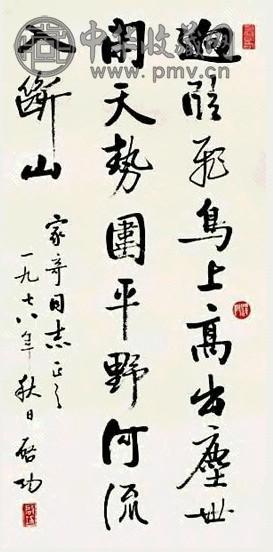 中华收藏网
www.pmv.cn
迥臨飛鳥上高出塵世
間天勢圍平野河流
入斷山
家奇同志正之
一九七八年秋日啟功